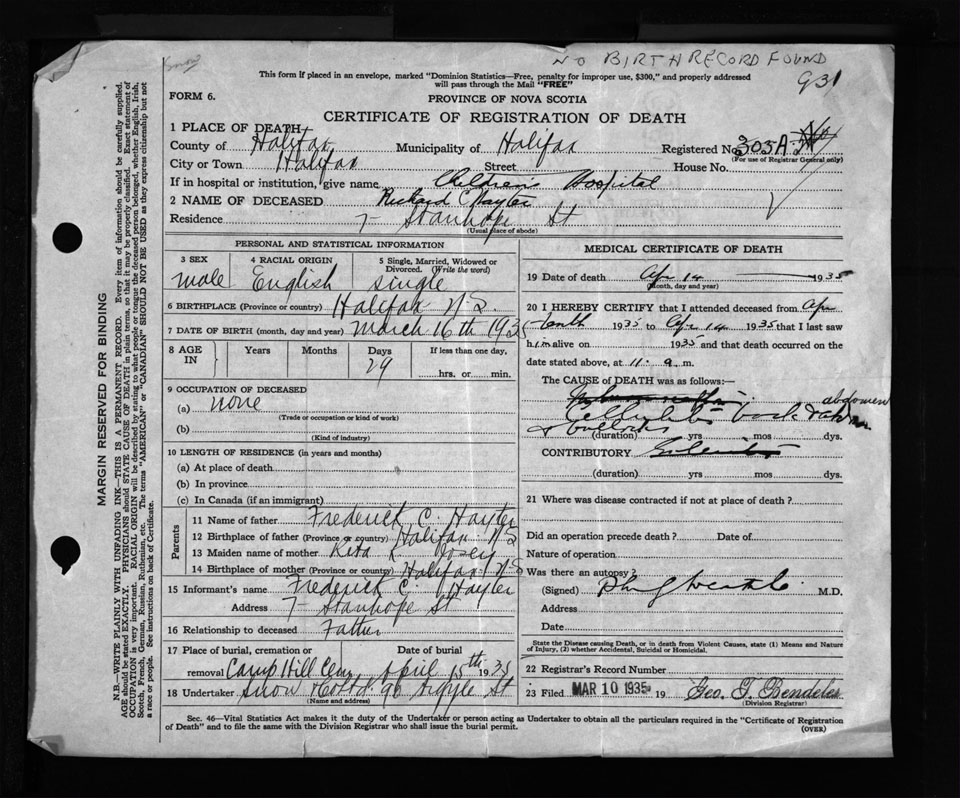 NO BIRTH RECORD FOUND
931
This form if placed in an envelope, marked "Dominion Statistics—Free, penalty for improper use, $300," and properly addressed
will pass through the Mail "FREE"
FORM 6.
PROVINCE OF NOVA SCOTIA
CERTIFICATE OF REGISTRATION OF DEATH
1 PLACE OF DEATH
County of Halifax Municipality of Halifax Registered No. 303A
(For use of Registrar General only)
City or Town Halifax Street House No.
If in hospital or institution, give name Children's Hospital
2 NAME OF DECEASED Richard C Hayter
Residence 7 - Stanhope St
(Usual place of abode)
PERSONAL AND STATISTICAL INFORMATION
3 SEX male
4 RACIAL ORIGIN English
5 Single, Married, Widowed or Divorced. (Write the word) single
6 BIRTHPLACE (Province or country) Halifax N.S.
7 DATE OF BIRTH (month, day and year) March 16th 1935
8 AGE IN Years Months Days 29 If less than one day, hrs. or min.
9 OCCUPATION OF DECEASED
(a) none
(Trade or occupation or kind of work)
(b)
(Kind of industry)
10 LENGTH OF RESIDENCE (in years and months)
(a) At place of death
(b) In province
(c) In Canada (if an immigrant)
Parents
11 Name of father Frederick C. Hayter
12 Birthplace of father (Province or country) Halifax N.S
13 Maiden name of mother
14 Birthplace of mother (Province or country) Halifax N.S
15 Informant's name Frederick C. Hayter
Address 7 - Stanhope St
16 Relationship to deceased Father
17 Place of burial, cremation or removal Camp Hill Cem Date of burial April 15th 1935
18 Undertaker Snow & Co Ltd. 90 Argyle St
(Name and address)
MEDICAL CERTIFICATE OF DEATH
19 Date of death Apr 14 1935
(Month, day and year)
20 I HEREBY CERTIFY that I attended deceased from Apr
tenth 1935 to Apr 14 1935 that I last saw
him alive on 1935 and that death occurred on the
date stated above, at 11. a. m.
The CAUSE of DEATH was as follows:—
abdomen
Cellulitis back
& buttocks
(duration) yrs mos dys.
CONTRIBUTORY
(duration) yrs mos dys.
21 Where was disease contracted if not at place of death?
Did an operation precede death? Date of
Nature of operation
Was there an autopsy?
(Signed) M.D.
Address
Date
State the Disease causing Death, or in death from Violent Causes, state (1) Means and Nature
of Injury, (2) whether Accidental, Suicidal or Homicidal.
22 Registrar's Record Number
23 Filed MAR 10 1935 19 Geo.
(Division Registrar)
Sec. 46—Vital Statistics Act makes it the duty of the Undertaker or person acting as Undertaker to obtain all the particulars required in the "Certificate of Registration
of Death" and to file the same with the Division Registrar who shall issue the burial permit.
(OVER)
MARGIN RESERVED FOR BINDING
N.B.—WRITE PLAINLY WITH UNFADING INK—THIS IS A PERMANENT RECORD. Every item of information should be carefully supplied.
AGE should be stated EXACTLY. PHYSICIANS should STATE CAUSE OF DEATH in plain terms, so that it may be properly classified. Exact statement of
OCCUPATION is very important. RACIAL ORIGIN will be described by stating to what people or tongue the deceased person belonged, whether English, Irish,
Scotch, French, German, Russian, Ruthenian, etc. The terms "AMERICAN" or "CANADIAN" SHOULD NOT BE USED as they express citizenship but not
a race or people. See instructions on back of Certificate.